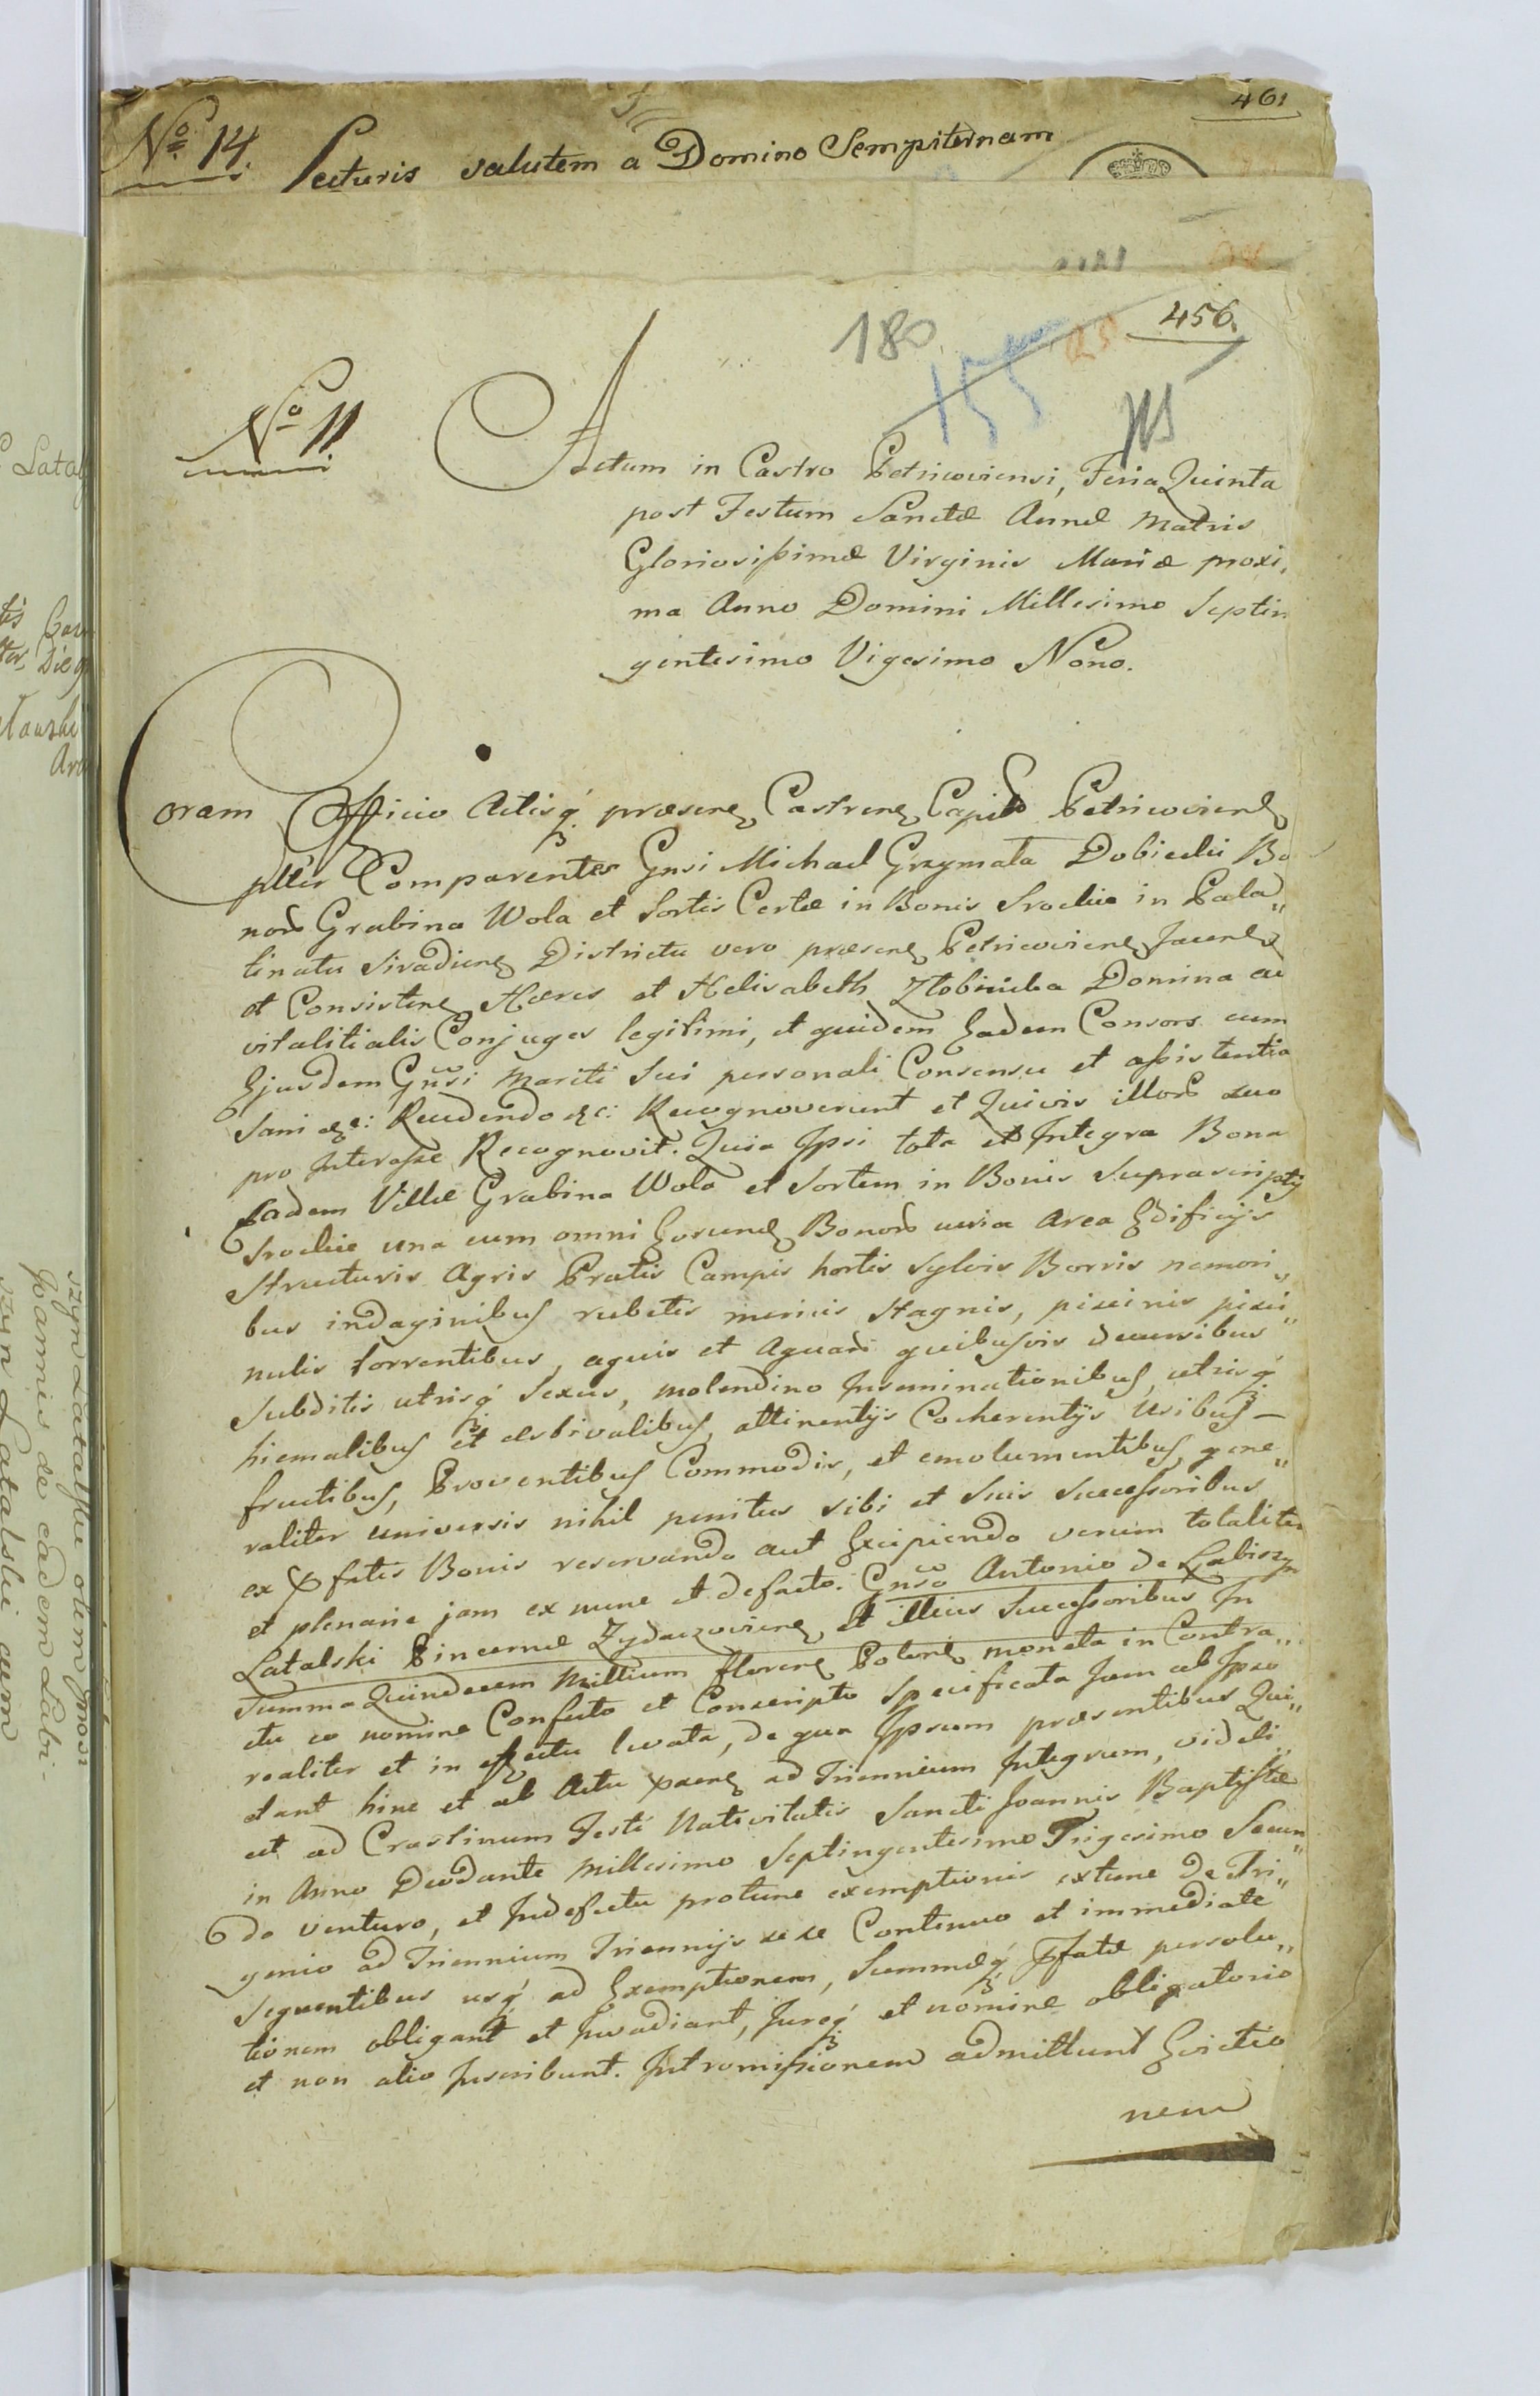 461
No 14. Lecturis salutem a Domino Sempiternam
456.
180
155
No 11
Actum in Castro Petricoviensi, Feria Quinta
post Festum Sanctæ Annæ Matris
Gloriosissimæ Virginis Mariæ proxi,
ma Anno Domini Millesimo Septin
gentesimo Vigesimo Nono.
Coram Officio Actisq́ præsen Castren Capitl Petricovien
plter Comparentes Gnsi Michael Grzymała Dobiecki Bo
nor Grabina Wola et Sortis Certæ in Bonis Srockie in Pala„
tinatu Siradien Districtu vero præsen Petricovien Jacen
et Consisten Hæres et Helisabeth Złobnicka Domina ac
vitalitialis Conjuges legitimi, et quidem Eadem Consors cum
Ejusdem Gnsi Mariti Sui personali Consensu et assistentia
Sani &c: Recedendo &c: Recognoverunt et Quivis illor suo
pro Interesse Recognovit. Quia Ipsi tota et Integra Bona
Eadem Villæ Grabina Wola et Sortem in Bonis Suprascriptis
Srockie una cum omni Eorund Bonor curia Area Edificijs
Structuris Agris Pratis Campis hortis Sylvis Borris nemori„
bus indaginibus rubetis mericis Stagnis, piscinis pisci„
nulis torrentibus, aquis et Aquar quibusvis decursibus
Subditis utriusq́ Sexus, molendino Inseminationibus, utrisq́
hiemalibus et æstivalibus, attinentijs Cohærentijs Usibus –
fructibus, Proventibus Commodis, et emolumentibus, gene„
raliter universis nihil penitus sibi et Suis Successoribus
ex pfatis Bonis reservando aut Excipiendo verum totaliter
et plenarie jam ex nunc et defacto. Gnso Antonio de Łabiszyn
Latalski Pincernæ Zydaczovien, et illius Successoribus In
Summa Quindecem Millium floren Polon moneta in Contra„
ctu eo nomine Confecto et Conscripto Specificata Jam ab Ipso
realiter et in effectu levata, de qua Ipsum præsentibus Qui„
etant hinc et ab Actu præsen ad Triennium Integrum, videli„
cet ad Crastinum Festi Nativitatis Sancti Joannis Baptistæ
in Anno Deodante Millesimo Septingentesimo Trigesimo Secun„
do venturo, et Indefectu protunc exemptionis extunc de Tri„
ennio ad Triennium Triennijs se se Continuo et immediate
Sequentibus usq́ ad Exemptionem, Summæq́ pfatæ persolu„
tionem obligant et Invadiant, Jureq́ et nomine obligatorio
et non alio Inscribunt. Intromissionem admittunt Evictio
nem